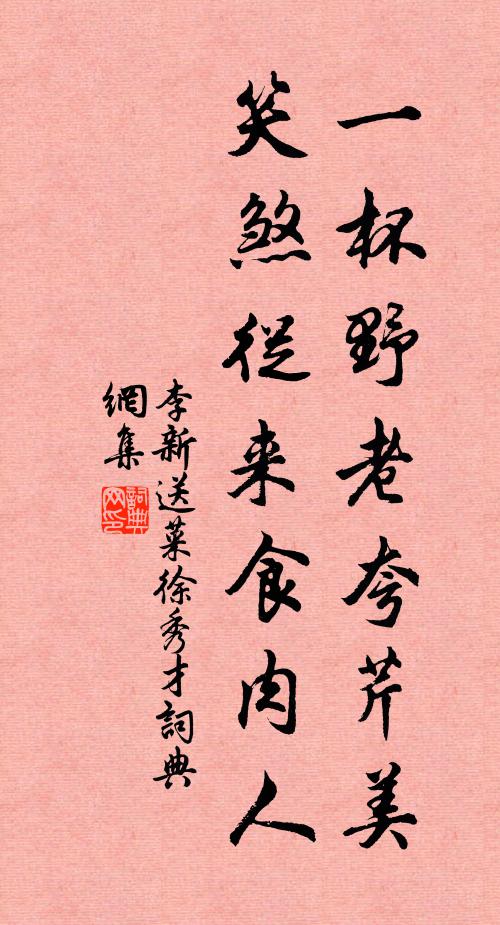 一杯野老夸芹美
笑煞從来食肉人
李新送菜徐秀才詞典
網集
詞典網印